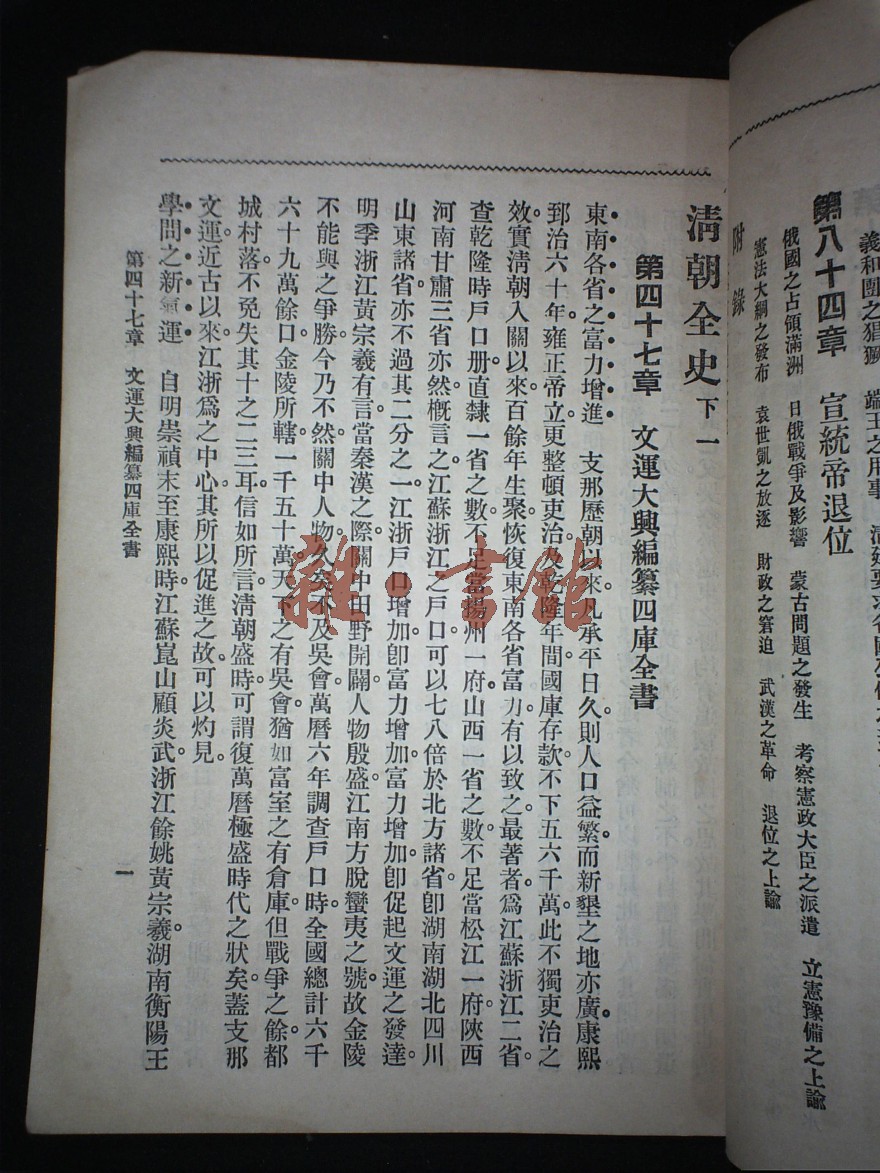 義和團之猖獗　端王之刑事
第八十四章　宣統帝退位
俄國之占領滿洲　日俄戰爭及影響　蒙古問題之發生　考察憲政大臣之派遣　立憲豫備之上諭
憲法大綱之發布　袁世凱之放逐　財政之窘迫　武漢之革命　退位之上諭
附錄
清朝全史下一
第四十七章　文運大興編纂四庫全書
東南各省之富力增進　支那歷朝以來。凡承平日久。則人口益繁。而新墾之地亦廣。康熙
郅治六十年。雍正帝立。更整頓吏治。及乾隆年間。國庫存款。不下五六千萬。此不獨吏治之
效。實清朝入關以來百餘年生聚。恢復東南各省富力。有以致之。最著者。爲江蘇浙江二省。
查乾隆時戶口册。直隸一省之數。不足當揚州一府。山西一省之數。不足當松江一府。陝西
河南甘肅三省亦然。槪言之。江蘇浙江之戶口。可以七八倍於北方諸省。卽湖南湖北四川
山東諸省。亦不過其二分之一。江浙戶口增加。卽富力增加。富力增加。卽促起文運之發達。
明季浙江黃宗羲有言。當秦漢之際。關中田野開闢。人物殷盛。江南方脫蠻夷之號。故金陵
不能與之爭勝。今乃不然。關中人物。久矣不及吳會。萬曆六年調查戶口時。全國總計六千
六十九萬餘口。金陵所轄。一千五十萬。天下之有吳會。猶如富室之有倉庫。但戰爭之餘。都
城村落。不免失其十之二三耳。信如所言。淸朝盛時。可謂復萬曆極盛時代之狀矣。蓋支那
文運。近古以來。江浙爲之中心。其所以促進之故。可以灼見。
學問之新氣運　自明崇禎末至康熙時。江蘇崑山顧炎武。浙江餘姚黃宗羲。湖南衡陽王
第四十七章　文運大興編纂四庫全書
一
雜·書館